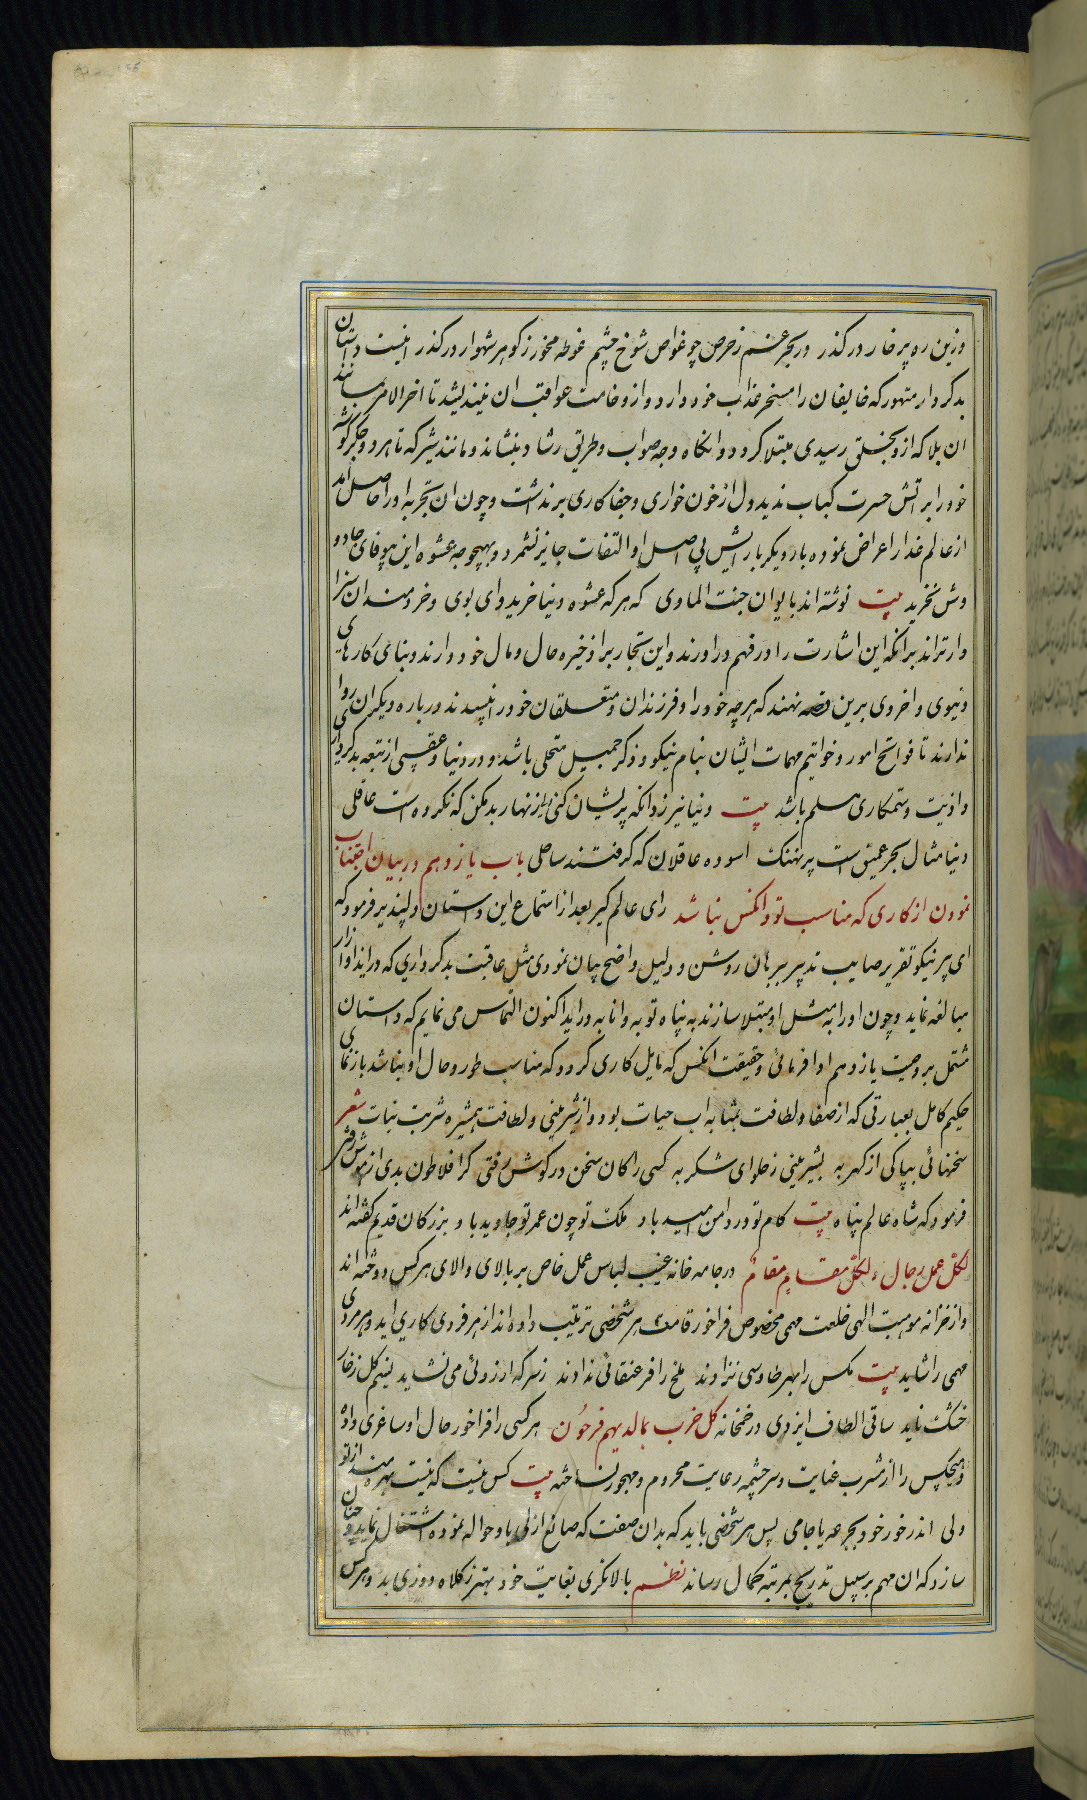 وزین ره پر خار درگذر در بحر غم ز حرص چو غواص شوخ چشم غوطه مخور ز گوهر شهوار درگذر اینست داستان
بدکردار متهور که خایفان را مسخر عذاب خود دارد و از وخامت عواقب ان نیندیشد تا اخر الامر بمانند
ان بلا که ازو بخلق رسیدی مبتلا کردد و انکاه وجه صواب و طریق رشاد بنشاند و مانند شیر که تا هر دو جگر کوشه
خود را بر اتش حسرت کباب ندید دل از خون خواری و جفا کاری برنداشت و چون ان تجربه او را حاصل امد
از عالم غدار اعراض نموده بار دیگر باریش بی اصل او التفات جایز نشمرد و بهیچوجه عشوه این بیوفای جادو
وش نخرید بیت نوشته اند بایوان جنت الماوی که هر که عشوه دنیا خرید وای بوی و خردمندان سزا
وارتراند برانکه این اشارت را در فهم در اورند و این تجارب را ذخیره حال و مال خود دارند و بنای کارهای
دنیوی و اخروی برین نهند که هرچه خود را و فرزندان و متعلقان خود را نپسندند در باره دیگران روا
ندارند تا فواتح امور و خواتیم مهمات ایشان بنام نیکو و ذکر جمیل متحلی باشد و در دنیا و عقبی از تبعه بدکرداری
و اذیت و ستمکاری مسلم باشد بیت دنیا نیرزد انکه پریشان کنی دلی زنهار بد مکن که نکرده است عاقلی
دنیا مثال بحر عمیق است پر نهنک اسوده عاقلان که گرفتند ساحلی باب یازدهم در بیان اجتناب
نمودن از کاری که مناسب تو و انکس نباشد رای عالم گیر بعد از استماع این داستان دلپذیر فرمود که
ای پیر نیکو تقریر صایب تدبیر ببرهان روشن و دلیل واضح بیان نمودی مثل عاقبت بدکرداری که در ایذا و ازار
مبالغه نماید و چون او را به مثل او مبتلا سازند به پناه توبه و انابه در اید اکنون التماس می نمایم که داستان
مشتمل بر وصیت یازدهم ادا فرمائی و حقیقت انکس که مایل کاری کردد که مناسب طور و حال او نباشد باز نمای
حکیم کامل بعبارتی که از صفا و لطافت بمثابه اب حیات بود و از شیرینی و لطافت همشیره شربت نبات شعر
سخنهائی بپاکی از کهر به بشیرینی ز حلوای شکر به کسی را کان سخن در کوش رفتی کر افلاطون بدی از هوش رفتی
فرمود که شاه عالم پناه بیت کام تو در دامن امید باد ملک تو چون عمر تو جاوید باد بزرکان قدیم گفته اند
لکل عمل رجال ولکل مقام مقام در جامه خانه غیب لباس عمل خاص بر بالای والای هر کس دوخته اند
و از خزانه موهبت الهی خلعت مهمی مخصوص فراخور قامت هر شخصی ترتیب داده اند از هر فردی کاری اید و هر مردی
مهمی را شاید بیت مکس را بهر طاوسی نزادند ملخ را فر عنقائی ندادند ز سرکه ارزوئی می نشاید نسیم گل ز خار
خشک ناید ساقی الطاف ایزدی در خمخانه کل حزب بما لدیهم فرحون هر کسی را فراخور حال او ساغری داده
و هیچکس را از شرب عنایت و سرچشمه رعایت محروم و مهجور نساخته بیت کس نیست که نیست بهره مند از تو
ولی اندر خور خود بجرعه یا جامی پس هر شخصی باید که بدان صفت که صانع ازلی باو حواله نموده اشتغال نماید و چنان
سازد که ان مهم بر سبیل تدریج بمرتبه کمال رساند نظم پالانگری بغایت خود بهتر ز کلاه دوزی بد و هر کس